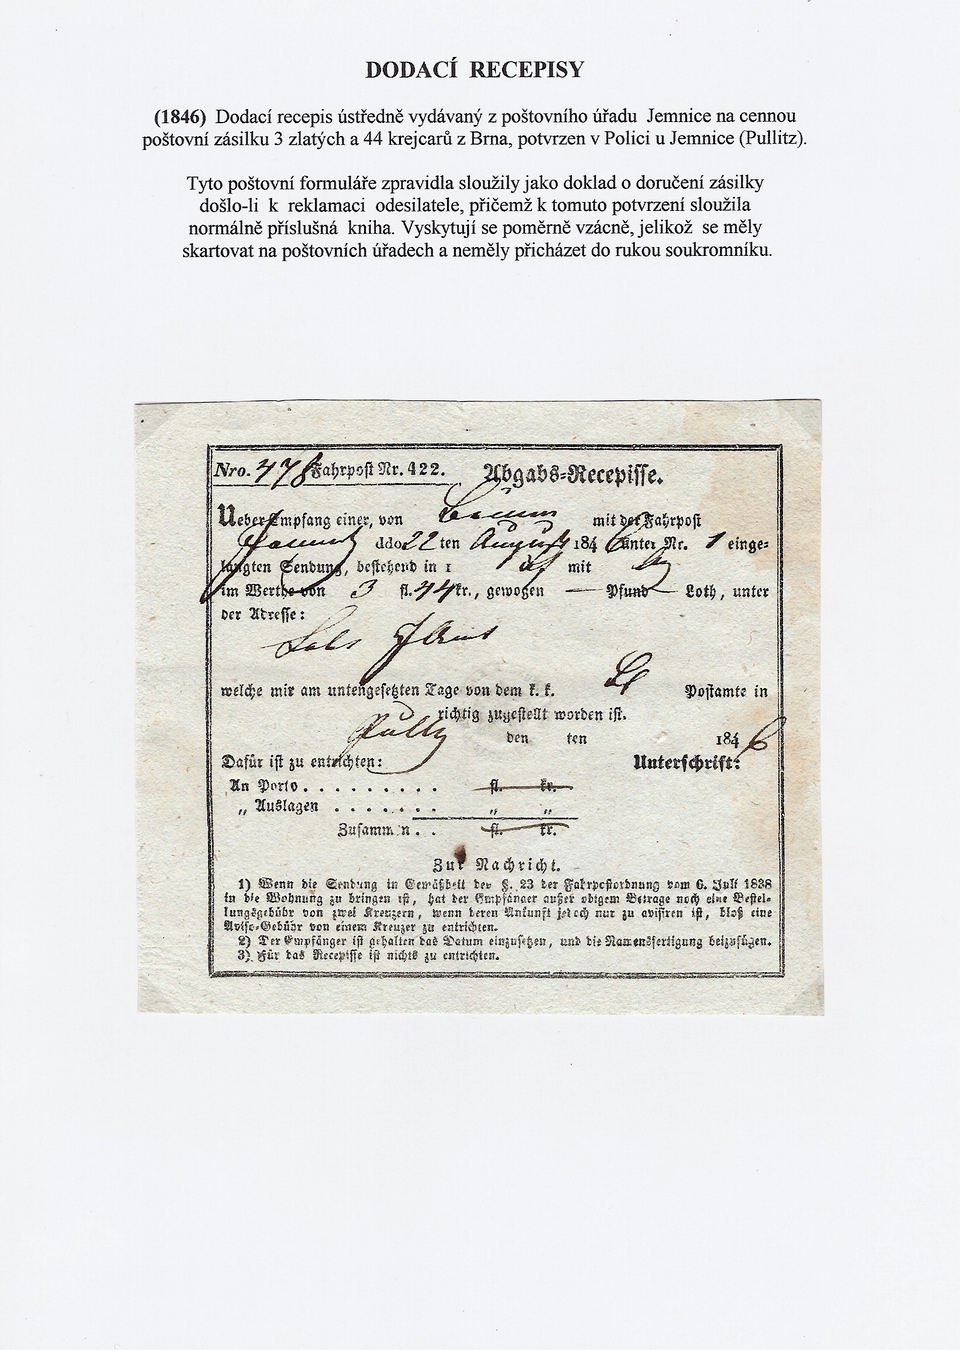 DODACÍ RECEPISY
(1846) Dodací recepis ústředně vydávaný z poštovního úřadu Jemnice na cennou
poštovní zásilku 3 zlatých a 44 krejcarů z Brna, potvrzen v Polici u Jemnice (Pullitz).
Tyto poštovní formuláře zpravidla sloužily jako doklad o doručení zásilky
došlo-li k reklamaci odesilatele, přičemž k tomuto potvrzení sloužila
normálně příslušná kniha. Vyskytují se poměrně vzácně, jelikož se měly
skartovat na poštovních úřadech a neměly přicházet do rukou soukromníku.
Nro. 478 Fahrpost Nr. 422. Abgabs-Recepisse.
Ueber Empfang einer, von Brünn mit der Fahrpost
ddo 22 ten August 1846 unter Nr. 1 einge-
langten Sendung, bestehend in 1 mit
im Werthe von 3 fl. 44 kr., gewogen — Pfund — Loth, unter
der Adresse:
welche mir am untengesetzten Tage von dem k. k. Postamte in
richtig zugestellt worden ist.
den ten 1846
Dafür ist zu entrichten: Unterschrift:
An Porto . . . . . . . . . fl. kr.
„ Auslagen . . . . . . . „ „
Zusammen . . fl. kr.
Zur Nachricht.
1) Wenn die Sendung in Gemäßheit des §. 23 der Fahrpostordnung vom 6. Juli 1838
in die Wohnung zu bringen ist, hat der Empfänger außer obigem Betrage noch eine Bestel-
lungsgebühr von zwei Kreuzern, wenn deren Ankunft jedoch nur zu avisiren ist, bloß eine
Aviso-Gebühr von einem Kreuzer zu entrichten.
2) Der Empfänger ist gehalten das Datum einzusetzen, und die Namensfertigung beizufügen.
3) Für das Recepisse ist nichts zu entrichten.